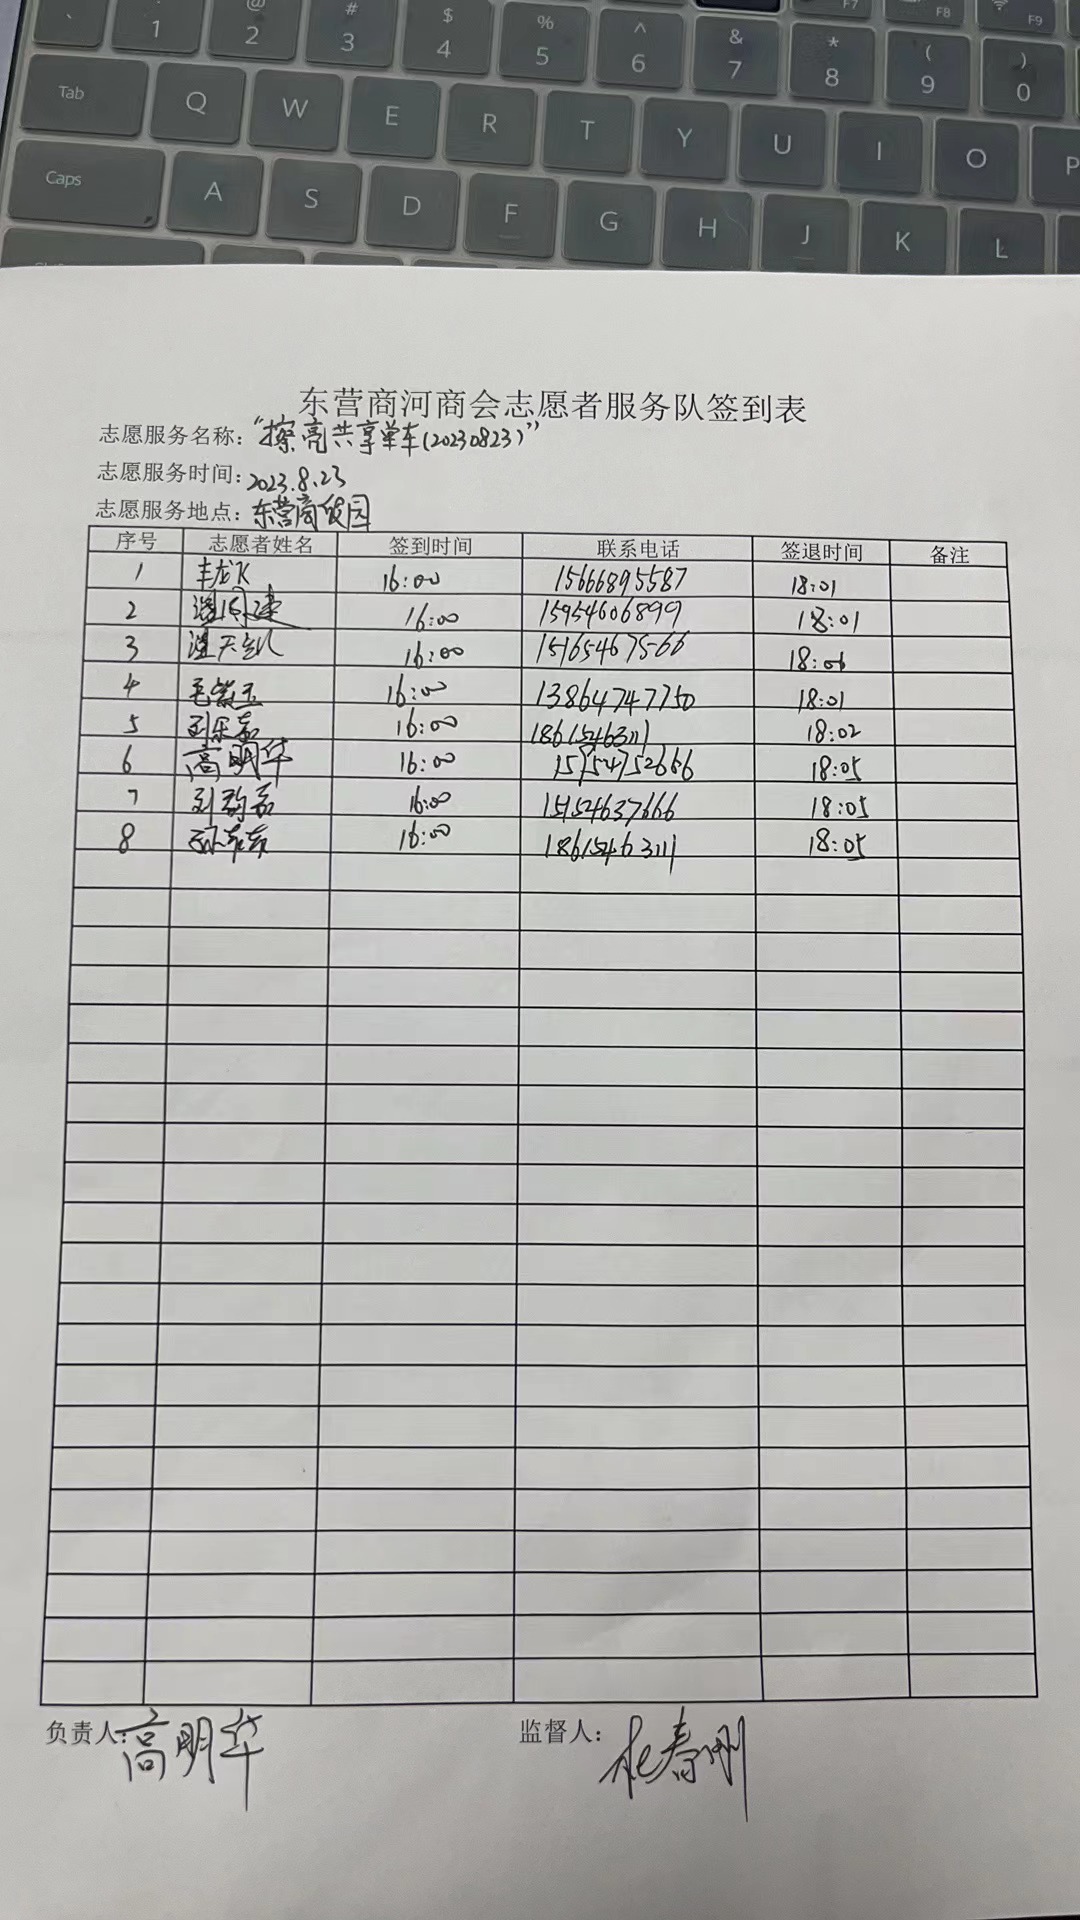 ` 1 @ 2 # 3 $ 4 % 5 ^ 6 & 7 * 8 ( 9 ) 0
F7 F8 F9
Tab Q W E R T Y U I O P
Caps A S D F G H J K L
东营商河商会志愿者服务队签到表
志愿服务名称：“擦亮共享单车(20230823)”
志愿服务时间：2023.8.23
志愿服务地点：东营商校园
序号 志愿者姓名 签到时间 联系电话 签退时间 备注
1 16:00 15666895587 18:01
2 16:00 15954606899 18:01
3 16:00 15165467566 18:06
4 16:00 13864747750 18:01
5 16:00 18615463111 18:02
6 高明华 16:00 18:05
7 16:00 15154637666 18:05
8 16:00 18615463111 18:05
负责人：高明华 监督人：杜春刚